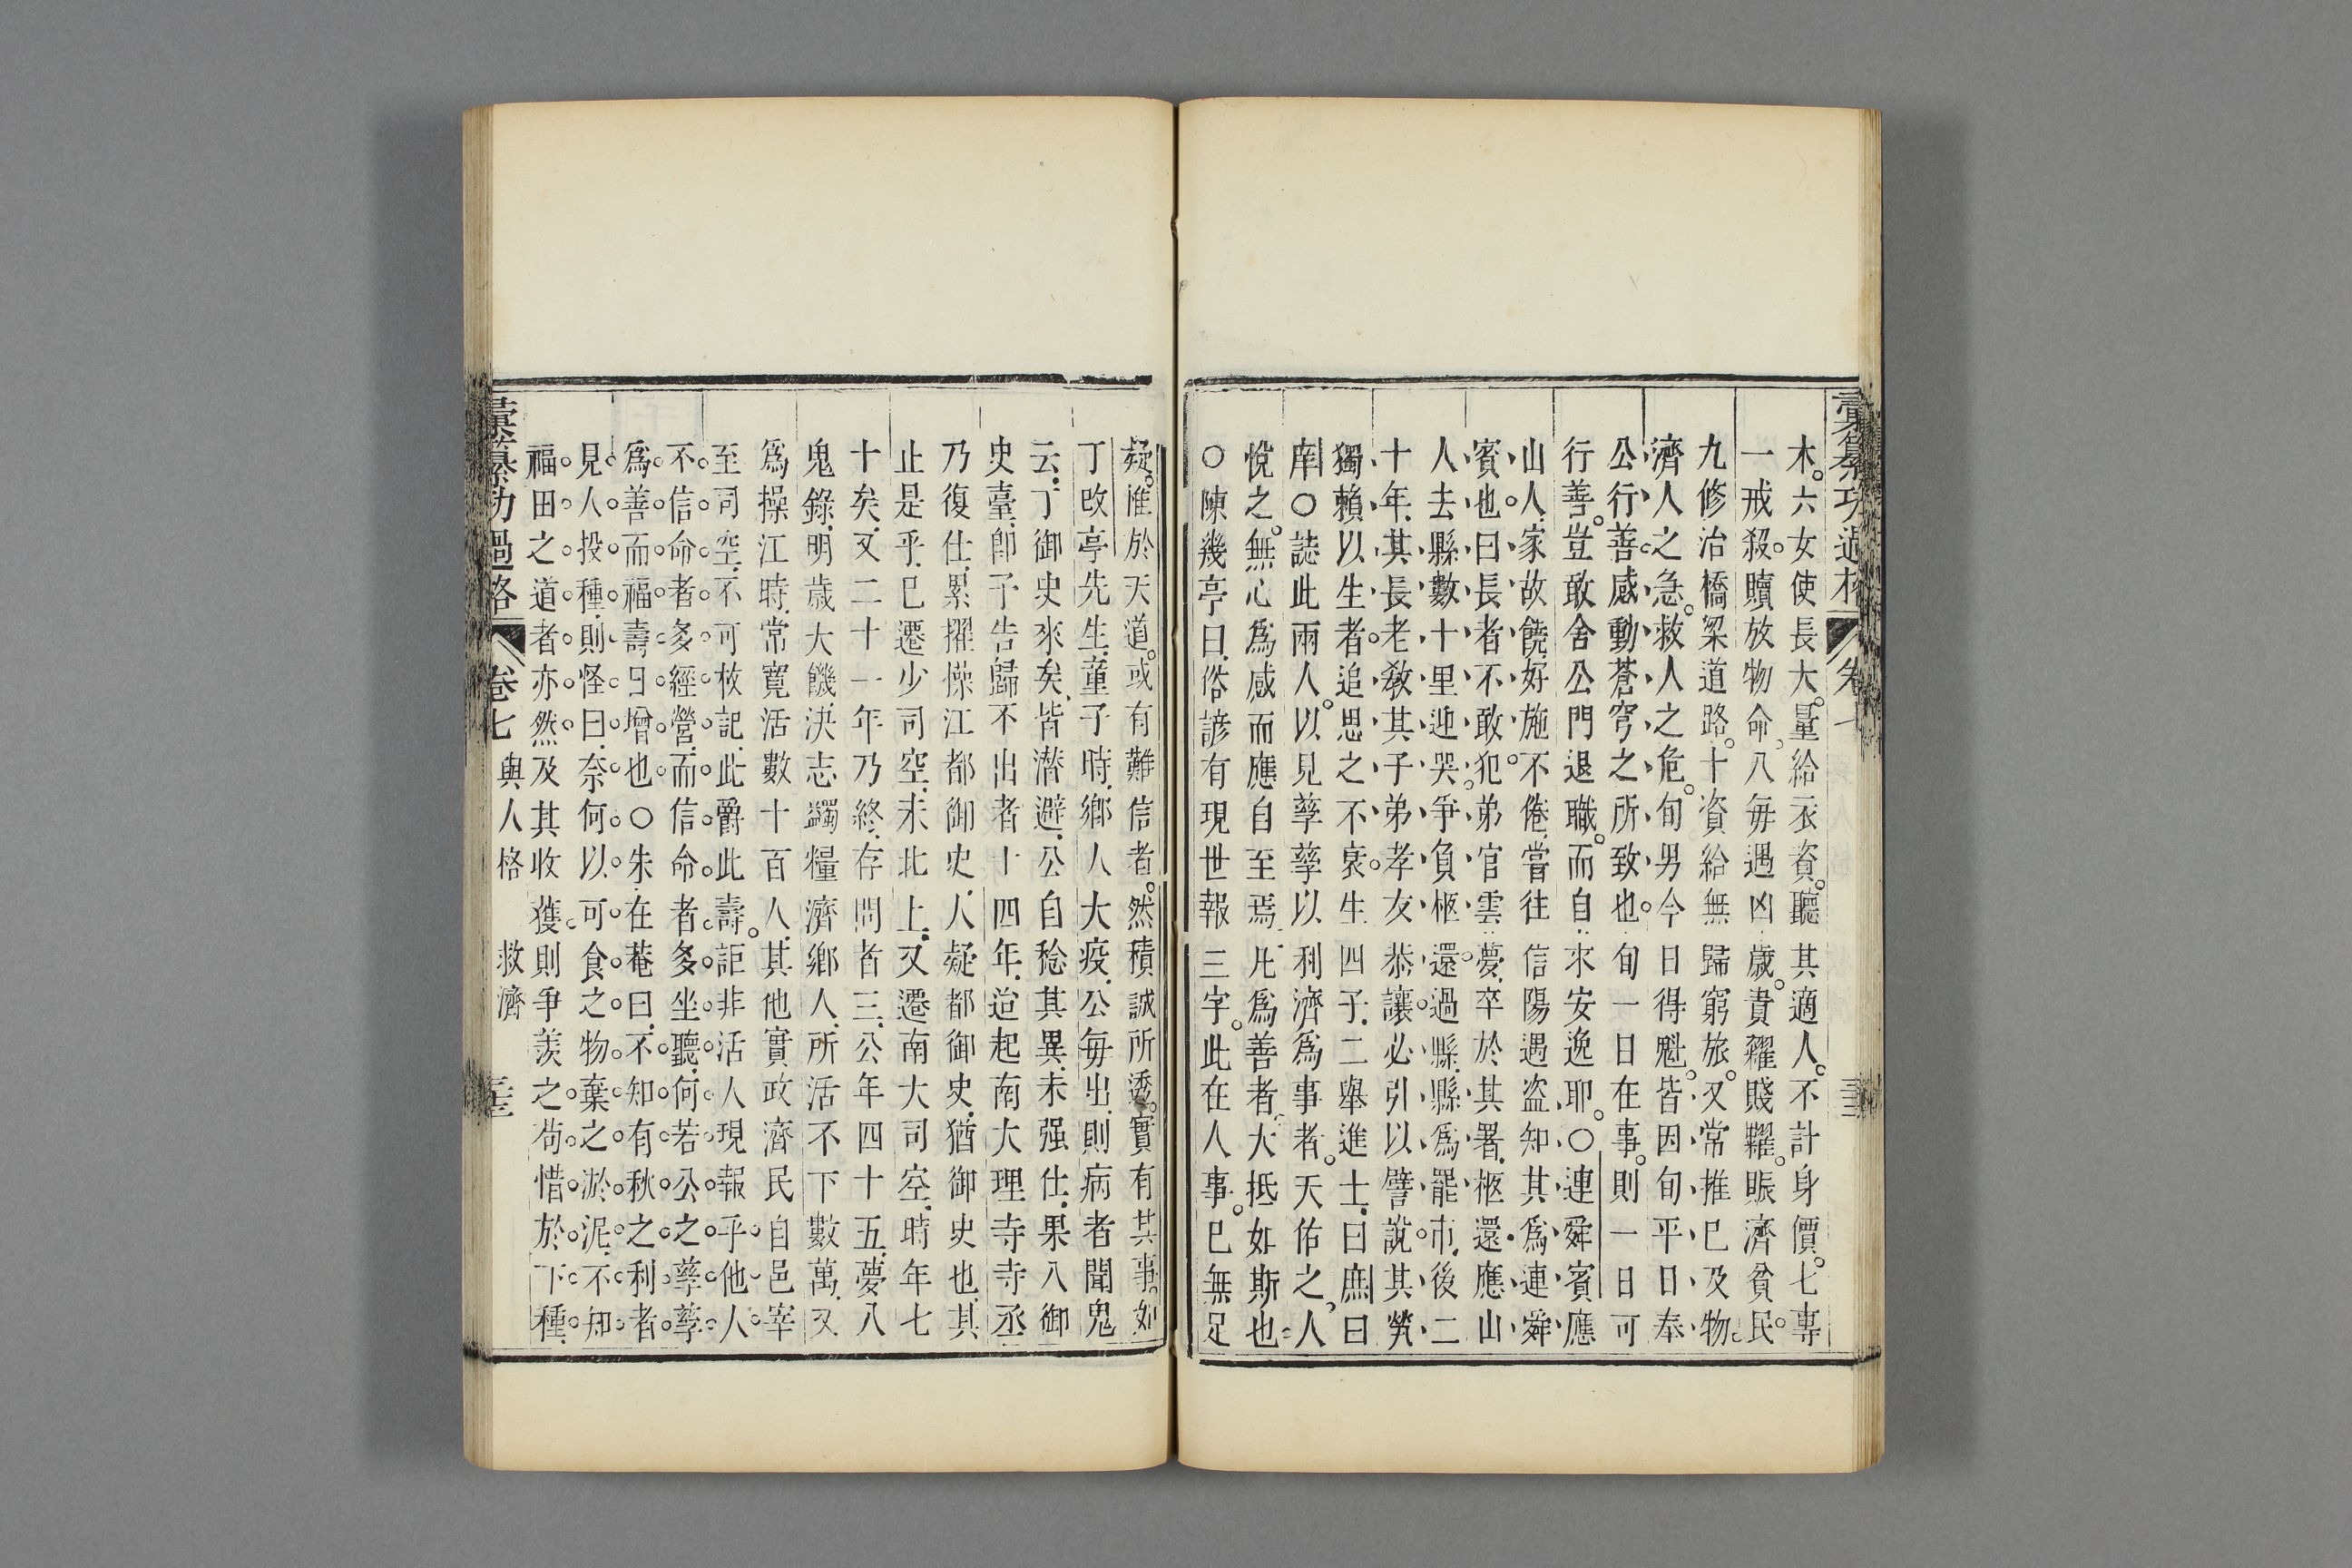 彚纂功過格 卷七
木。六女使長大。量給衣資。聽其適人。不計身價。七專
一戒殺。贖放物命。八每遇凶歲。貴糴賤糶。賑濟貧民。
九修治橋梁道路。十資給無歸窮旅。又常推已及物。
濟人之急。救人之危。旬男今日得魁。皆因旬平日奉
公行善。感動蒼穹之所致也。旬一日在事。則一日可
行善。豈敢舍公門退職。而自求安逸耶。〇連舜賓應
山人。家故饒。好施不倦。嘗往信陽遇盜。知其爲連舜
賓也。曰長者不敢犯。弟官雲夢。卒於其署。柩還應山
人去縣數十里迎哭。爭負柩還。過縣。縣爲罷市。後二
十年。其長老敎其子弟孝友恭讓。必引以譬說。其煢
獨賴以生者。追思之不衰。生四子。二舉進士。曰庶曰
庠〇誌此兩人。以見孳孳以利濟爲事者。天佑之。人
悅之。無心爲感。而應自至焉。凡爲善者。大抵如斯也
〇陳幾亭曰。俗諺有現世報三字。此在人事。已無足
疑。惟於天道。或有難信者。然積誠所透。實有其事。如
丁改亭先生。童子時。鄉人大疫。公每出。則病者聞鬼
云。丁御史來矣。皆潛避。公自稔其異。未强仕。果八御
史臺。卽予告歸不出者十四年。迨起南大理寺寺丞
乃復仕。累擢操江都御史。人疑都御史。猶御史也。其
止是乎。已遷少司空。未北上。又遷南大司空。時年七
十矣。又二十一年乃終。存問者三。公年四十五。夢八
鬼錄。明歲大饑。決志蠲糧濟鄉人。所活不下數萬。又
爲操江時。常寬活數十百人。其他實政濟民。自邑宰
至司空。不可枚記。此爵此壽。詎非活人現報乎。他人
不信命者多經營。而信命者多坐聽。何若公之孳孳
爲善而福壽日增也〇朱在菴曰。不知有秋之利者
見人投種。則怪曰。奈何以可食之物。棄之淤泥。不知
福田之道者亦然。及其收獲。則爭羨之。苟惜於下種。
彚纂功過格 卷七 與人格 救濟